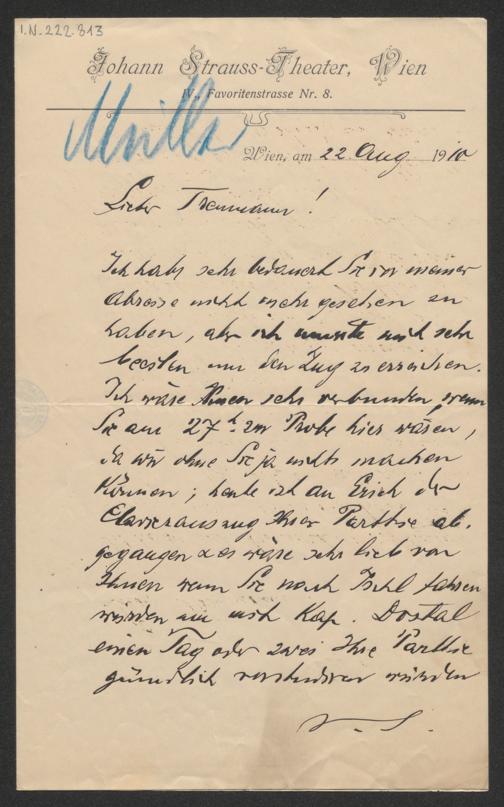 I.N. 222.813
Johann Strauss-Theater, Wien
IV., Favoritenstrasse Nr. 8.
Müller
Wien, am 22 Aug 1910
Lieber Treumann!
Ich habe sehr bedauert Sie vor meiner
Abreise nicht mehr gesehen zu
haben, aber ich musste mich sehr
beeilen um den Zug zu erreichen.
Ich wäre Ihnen sehr verbunden, wenn
Sie am 27t. zur Probe hier wären,
da wir ohne Sie ja nichts machen
können; heute ist an Erich der
Clavierauszug Ihrer Parthie ab-
gegangen & es wäre sehr lieb von
Ihnen wenn Sie nach Ischl fahren
würden um mit Kap. Dostal
einen Tag oder zwei Ihre Parthie
gründlich vorstudieren würden